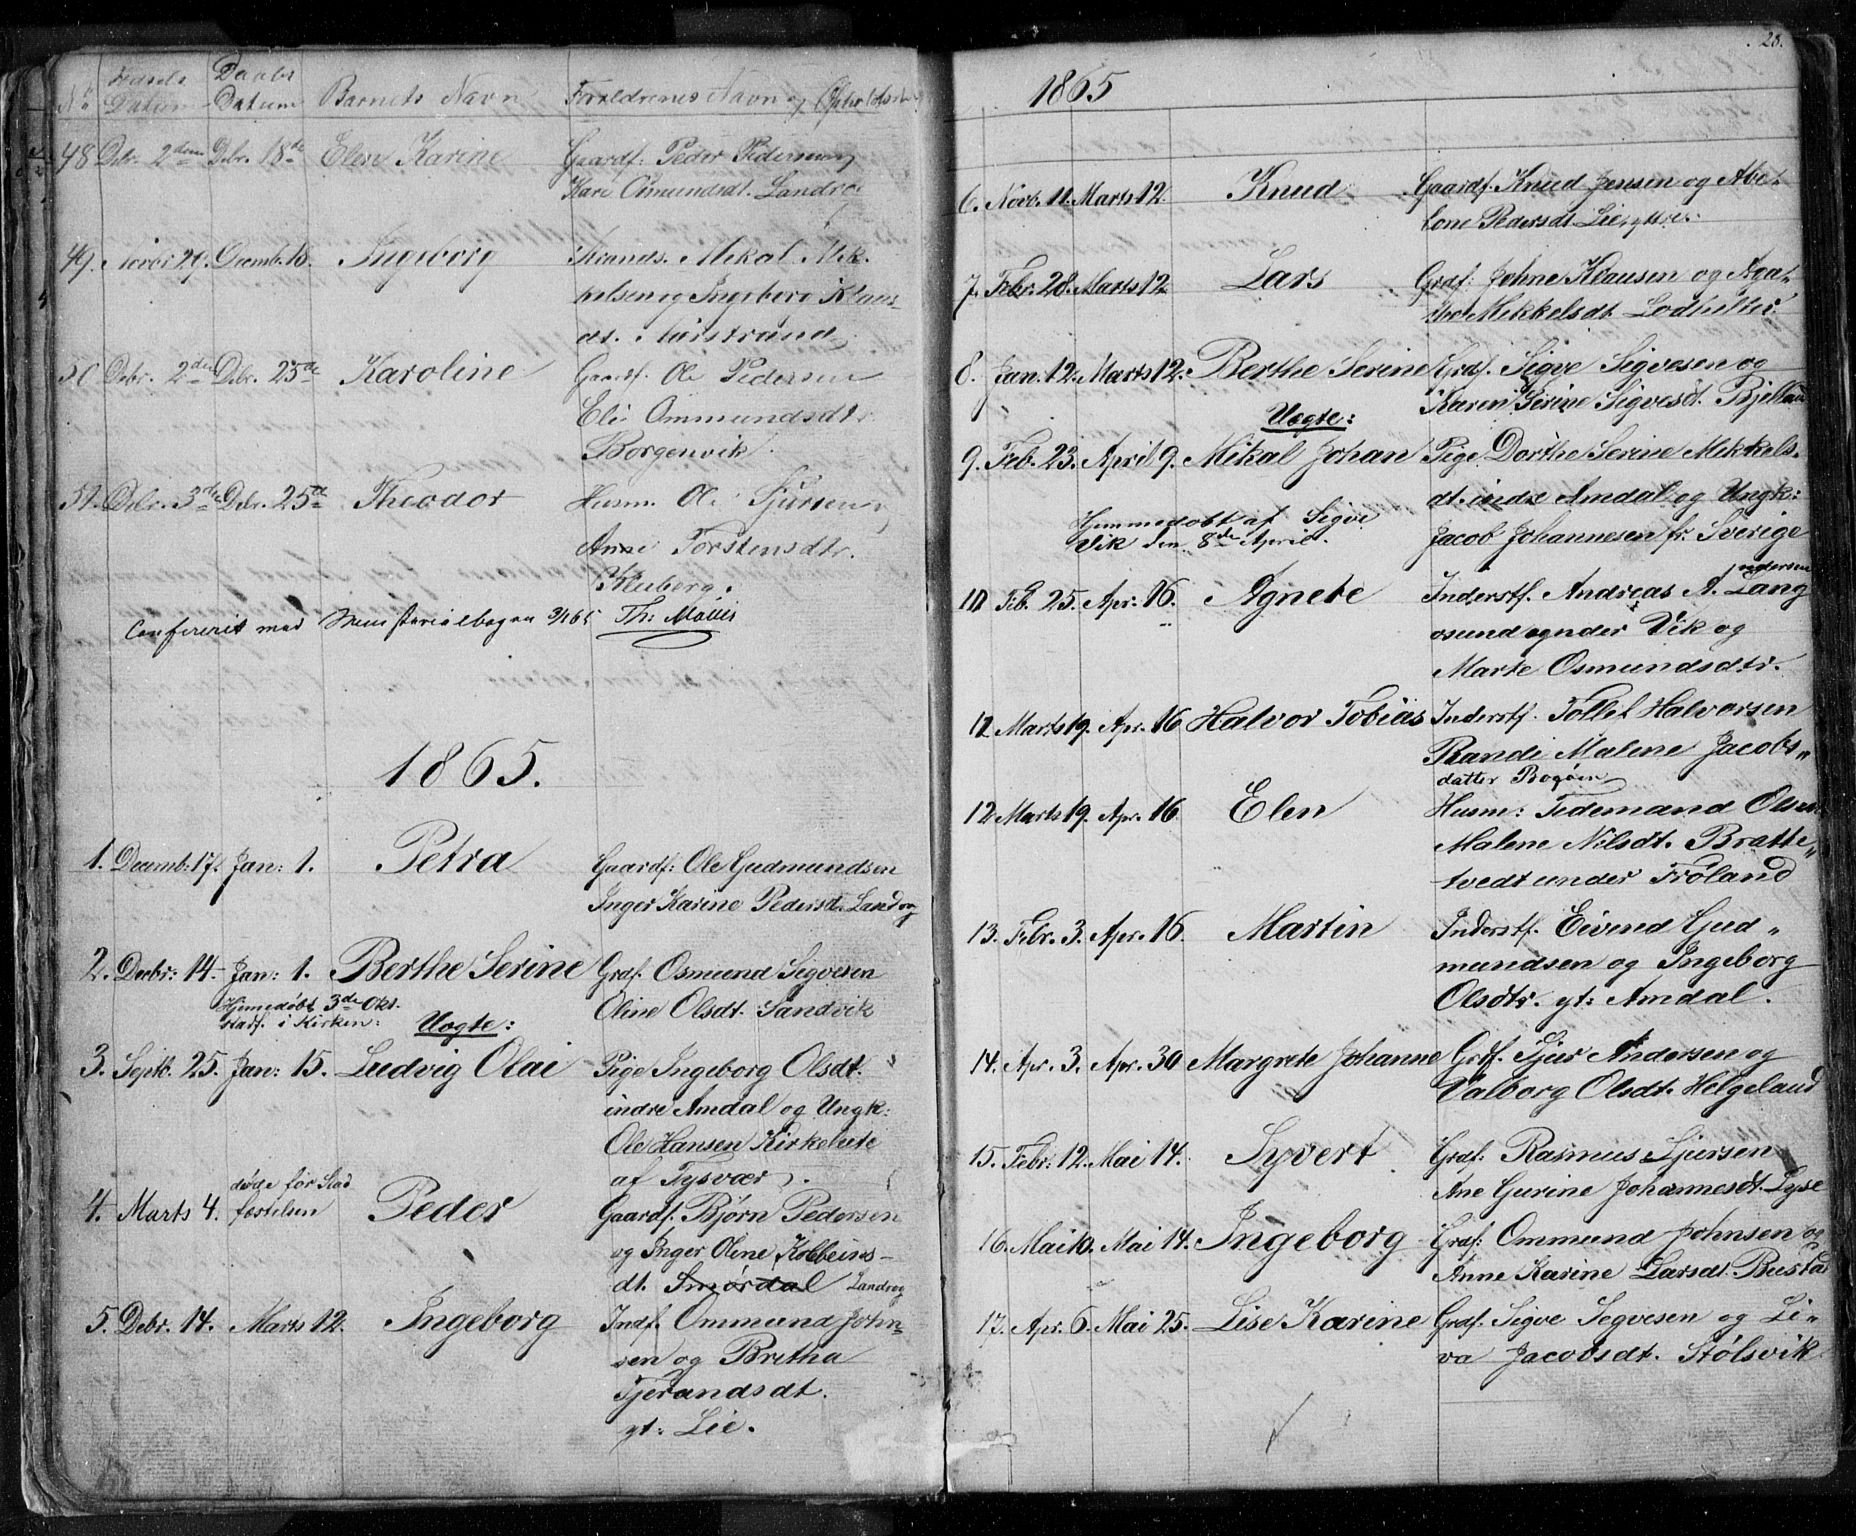 No Fødsels Datum Daabs Datum Barnets Navn Forældrenes Navn og Opholdssted
48 Debr. 2den Debr. 18de Elen Karine Gaardf. Peder Pedersen,
Kari Osmundsdt. Landrø
49. Novbr 29. Decemb. 18. Ingeborg Strands. Mikal Mik-
kelsen og Ingeborg Klaus-
dt.
50 Debr. 2den Debr. 25de Karoline Gaardf. Ole Pedersen
Eli Ommundsdtr
Borgenvik.
51. Debr. 3de Debr. 25de Theodor Husm. Ole Sjursen,
Anne Torstensdtr.
Kluberg.
Confereret med Ministerialbogen Th: Møller
1865.
1. Decemb. 17. Jan: 1. Petra Gaardf: Ole Gudmundsen
Inger Karine Pedersd. Landrøg
2. Decbr: 14. Jan: 1. Berthe Serine Graf. Osmund Segvesen
Oline Olsdt. Sandvik
Hjemedøbt 3de Okt.
stadf. i Kirken: Uægte:
3. Septb. 25. Jan: 15. Ludvig Olai Pige Ingeborg Olsdt.
indre Amdal og Ungk:
Ole Hansen Kirkeleite
af Tysvær.
døde før Stad
4. Marts 4. fæstelsen Peder Gaardf. Bjørn Pedersen
og Inger Oline Kolbeins-
dt. Smørdal Landrøg
5. Debr. 14. Marts 12. Ingeborg Indf. Ommund John-
sen og Bretha
Tjerandsdt.
yt: Lie.
28.
1865
6. Novb. 11. Marts 12. Knud Gaardf. Knud Jensen og Abe-
lone Pedersdt. Lie, yttre.
7. Febr. 28. Marts 12. Lars Graf: Johne Klausen og Aga-
the Mikkelsdt.
8. Jan. 12. Marts 12. Berthe Serine Grdf. Sigve Segvesen og
Karen Serine Sigvesdt. Bjelland
Uægte:
9. Feb. 23. April 9. Mikal Johan Pige Dorthe Serine Mikkels-
dt. indre Amdal og Ungk:
Hjemmedøbt af Sigve
Vik den 8de April.
Jacob Johannesen fr. Sverige
10 Feb. 25. Apr. 16. Agnete Inderstf. Andreas Andersen Lang
osund under Vik og
Marte Osmundsdtr.
12 Marts 19. Apr. 16 Halvor Tobias Inderstf. Tollef Halvorsen
Randi Malene Jacobs"
datter Bogøen
12 Marts 19. Apr. 16 Elen Husm: Tedemand Olsen
Malene Nilsdt. Bratte"
tvedt under Frøland
13. Febr. 3. Apr. 16. Martin Inderstf. Eivend Gud"
mundsen og Ingeborg
Olsdtr. yt: Amdal.
14. Apr. 3. Apr. 30 Margrete Johanne Grdf. Sjur Andersen og
Valborg Olsdt. Helgeland
15. Febr. 12. Mai 14. Syvert Graf: Rasmus Sjursen,
Ane Gurine Johannesdt. Lyse
16. Mai Mai 14. Ingeborg Graf: Ommund Johnsen og
Anne Karine Larsdt. Bustad
17. Apr. 6. Mai 25. Lise Karine Graf. Sigve Segvesen og Li-
va Jacobsdt. Stølsvik